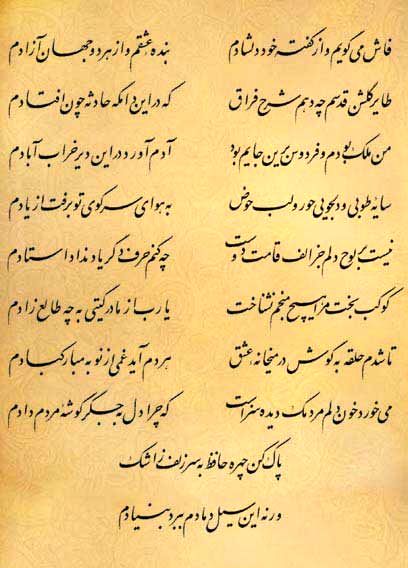 فاش می گویم و از گفته خود دلشادم بنده عشقم و از هر دو جهان آزادم
طایر گلشن قدسم چه دهم شرح فراق که در این دامگه حادثه چون افتادم
من ملک بودم و فردوس برین جایم بود آدم آورد در این دیر خراب آبادم
سایه طوبی و دلجویی حور و لب حوض به هوای سر کوی تو برفت از یادم
نیست بر لوح دلم جز الف قامت دوست چه کنم حرف دگر یاد نداد استادم
کوکب بخت مرا هیچ منجم نشناخت یا رب از مادر گیتی به چه طالع زادم
تا شدم حلقه به گوش در میخانه عشق هر دم آید غمی از نو به مبارکبادم
می خورد خون دلم مردمک دیده سزاست که چرا دل به جگر گوشه مردم دادم
پاک کن چهره حافظ به سر زلف ز اشک
ور نه این سیل دمادم ببرد بنیادم